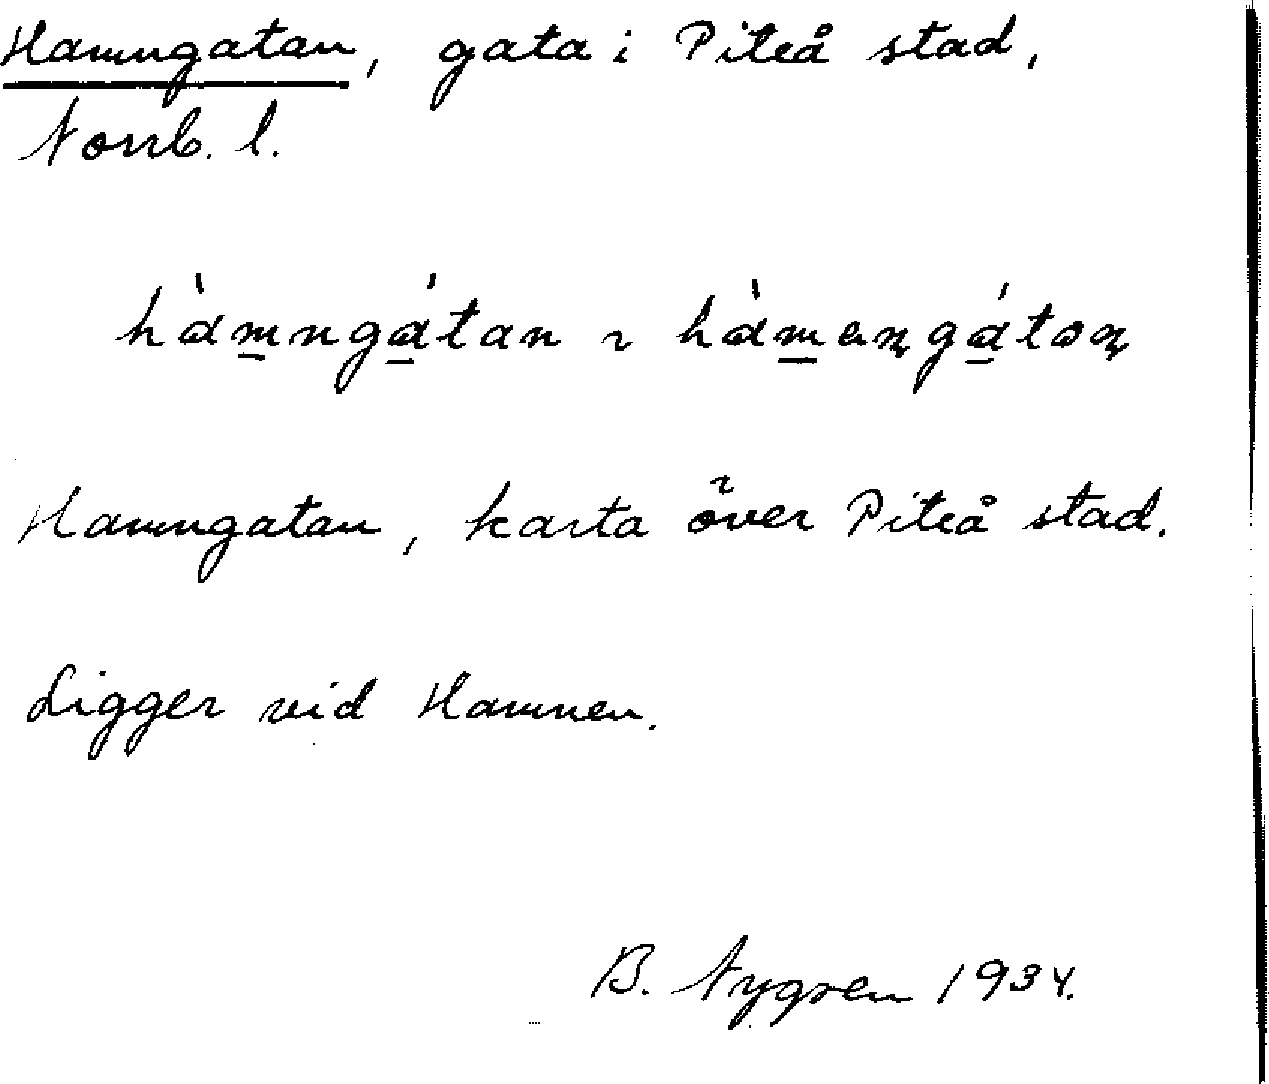 Hamngatan, gata i Piteå stad,
Norrb. l.
hàm̲ngá̲tan ~ hàm̲eŋgá̲tɔŋ
Hamngatan, karta över Piteå stad.
Ligger vid Hamnen.
B. Nygren 1934.